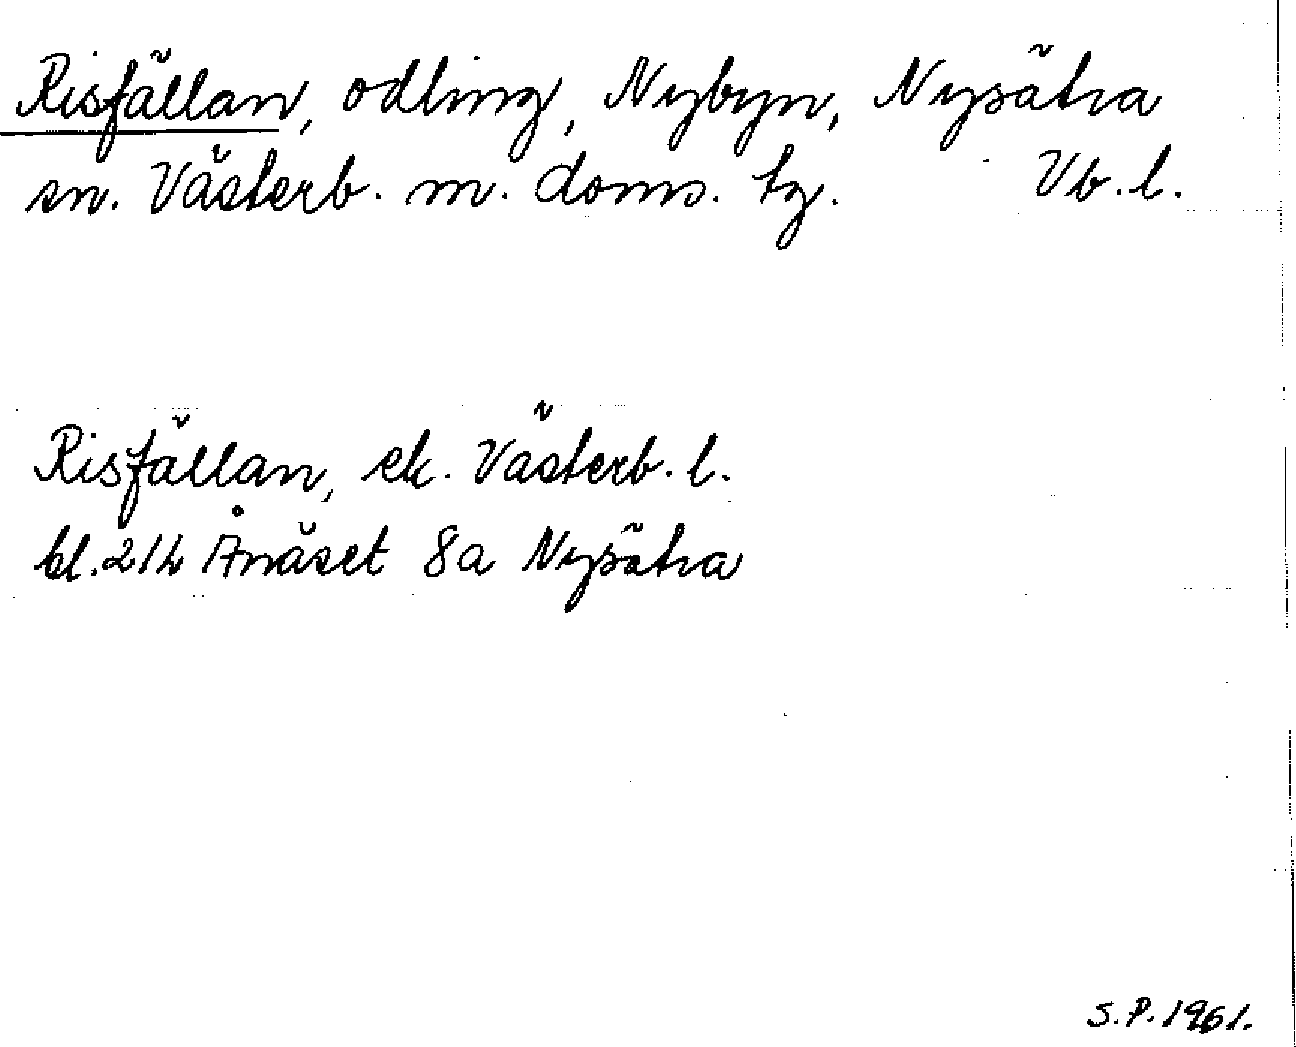 Risfällan, odling, Nybyn, Nysätra
sn. Västerb. m. doms. tg. Vb. l.
Risfällan, ek. Västerb. l.
bl. 21h Ånäset 8a Nysätra
S.P. 1961.